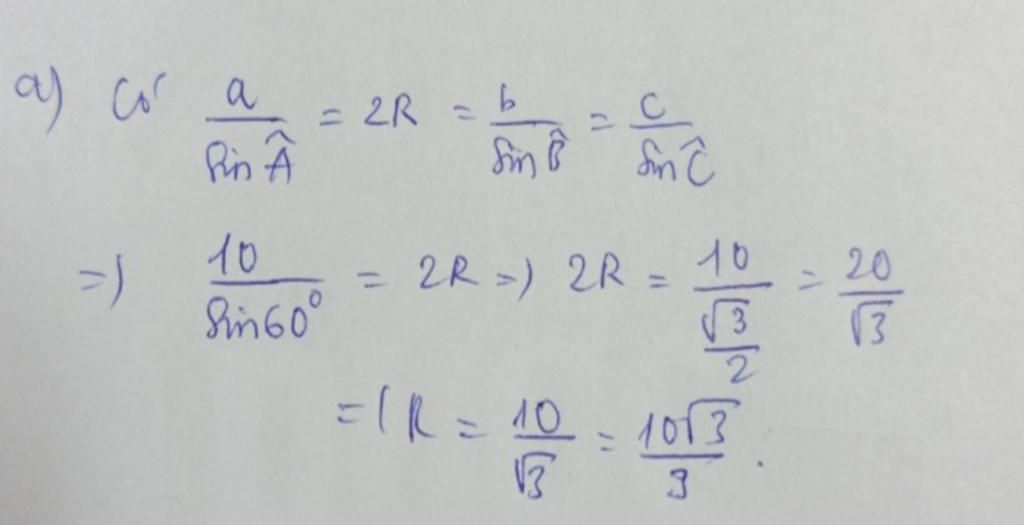 a) Có a/sin Â = 2R = b/sin B̂ = c/sin Ĉ
=) 10/sin60° = 2R =) 2R = 10/(√3/2) = 20/√3
=) R = 10/√3 = 10√3/3.